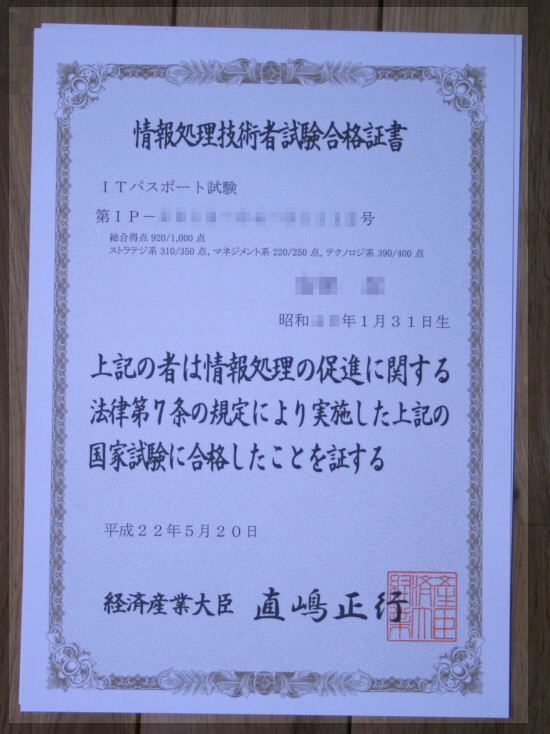 情報処理技術者試験合格証書
ITパスポート試験
第IP－号
総合得点 920/1,000 点
ストラテジ系 310/350 点, マネジメント系 220/250 点, テクノロジ系 390/400 点
昭和年1月31日生
上記の者は情報処理の促進に関する
法律第7条の規定により実施した上記の
国家試験に合格したことを証する
平成22年5月20日
経済産業大臣 直嶋正行